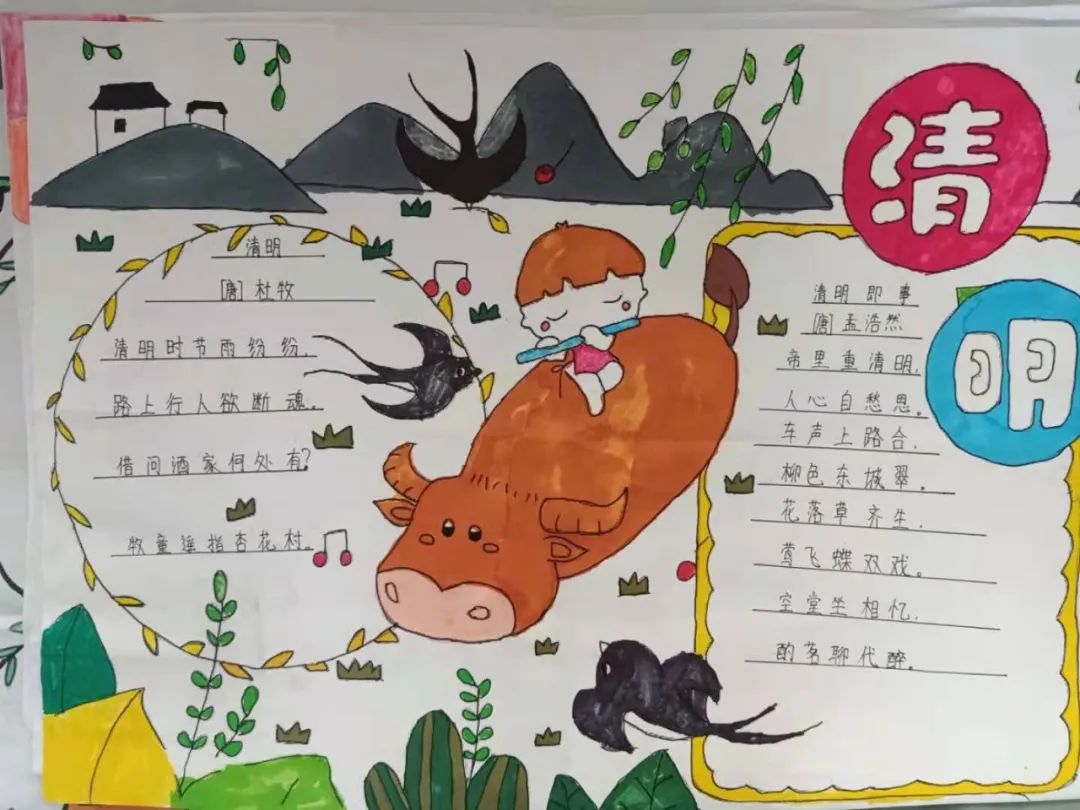 清
明
清明
[唐] 杜牧
清明时节雨纷纷,
路上行人欲断魂。
借问酒家何处有?
牧童遥指杏花村。
清明即事
[唐]孟浩然
帝里重清明,
人心自愁思。
车声上路合,
柳色东城翠。
花落草齐生,
莺飞蝶双戏。
空堂坐相忆,
酌茗聊代醉。